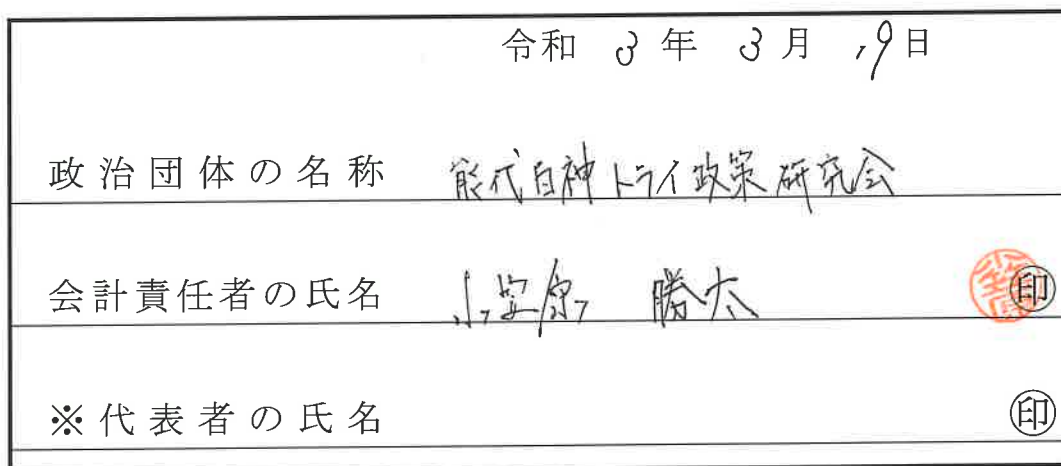 令和 3 年 3 月 19日
政治団体の名称 能代白神トライ政策研究会
会計責任者の氏名 小笠原 勝太 印
※代表者の氏名 印